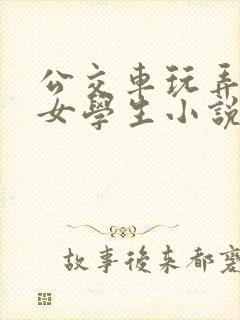 公交車玩弄
女學生小説
故事後来都